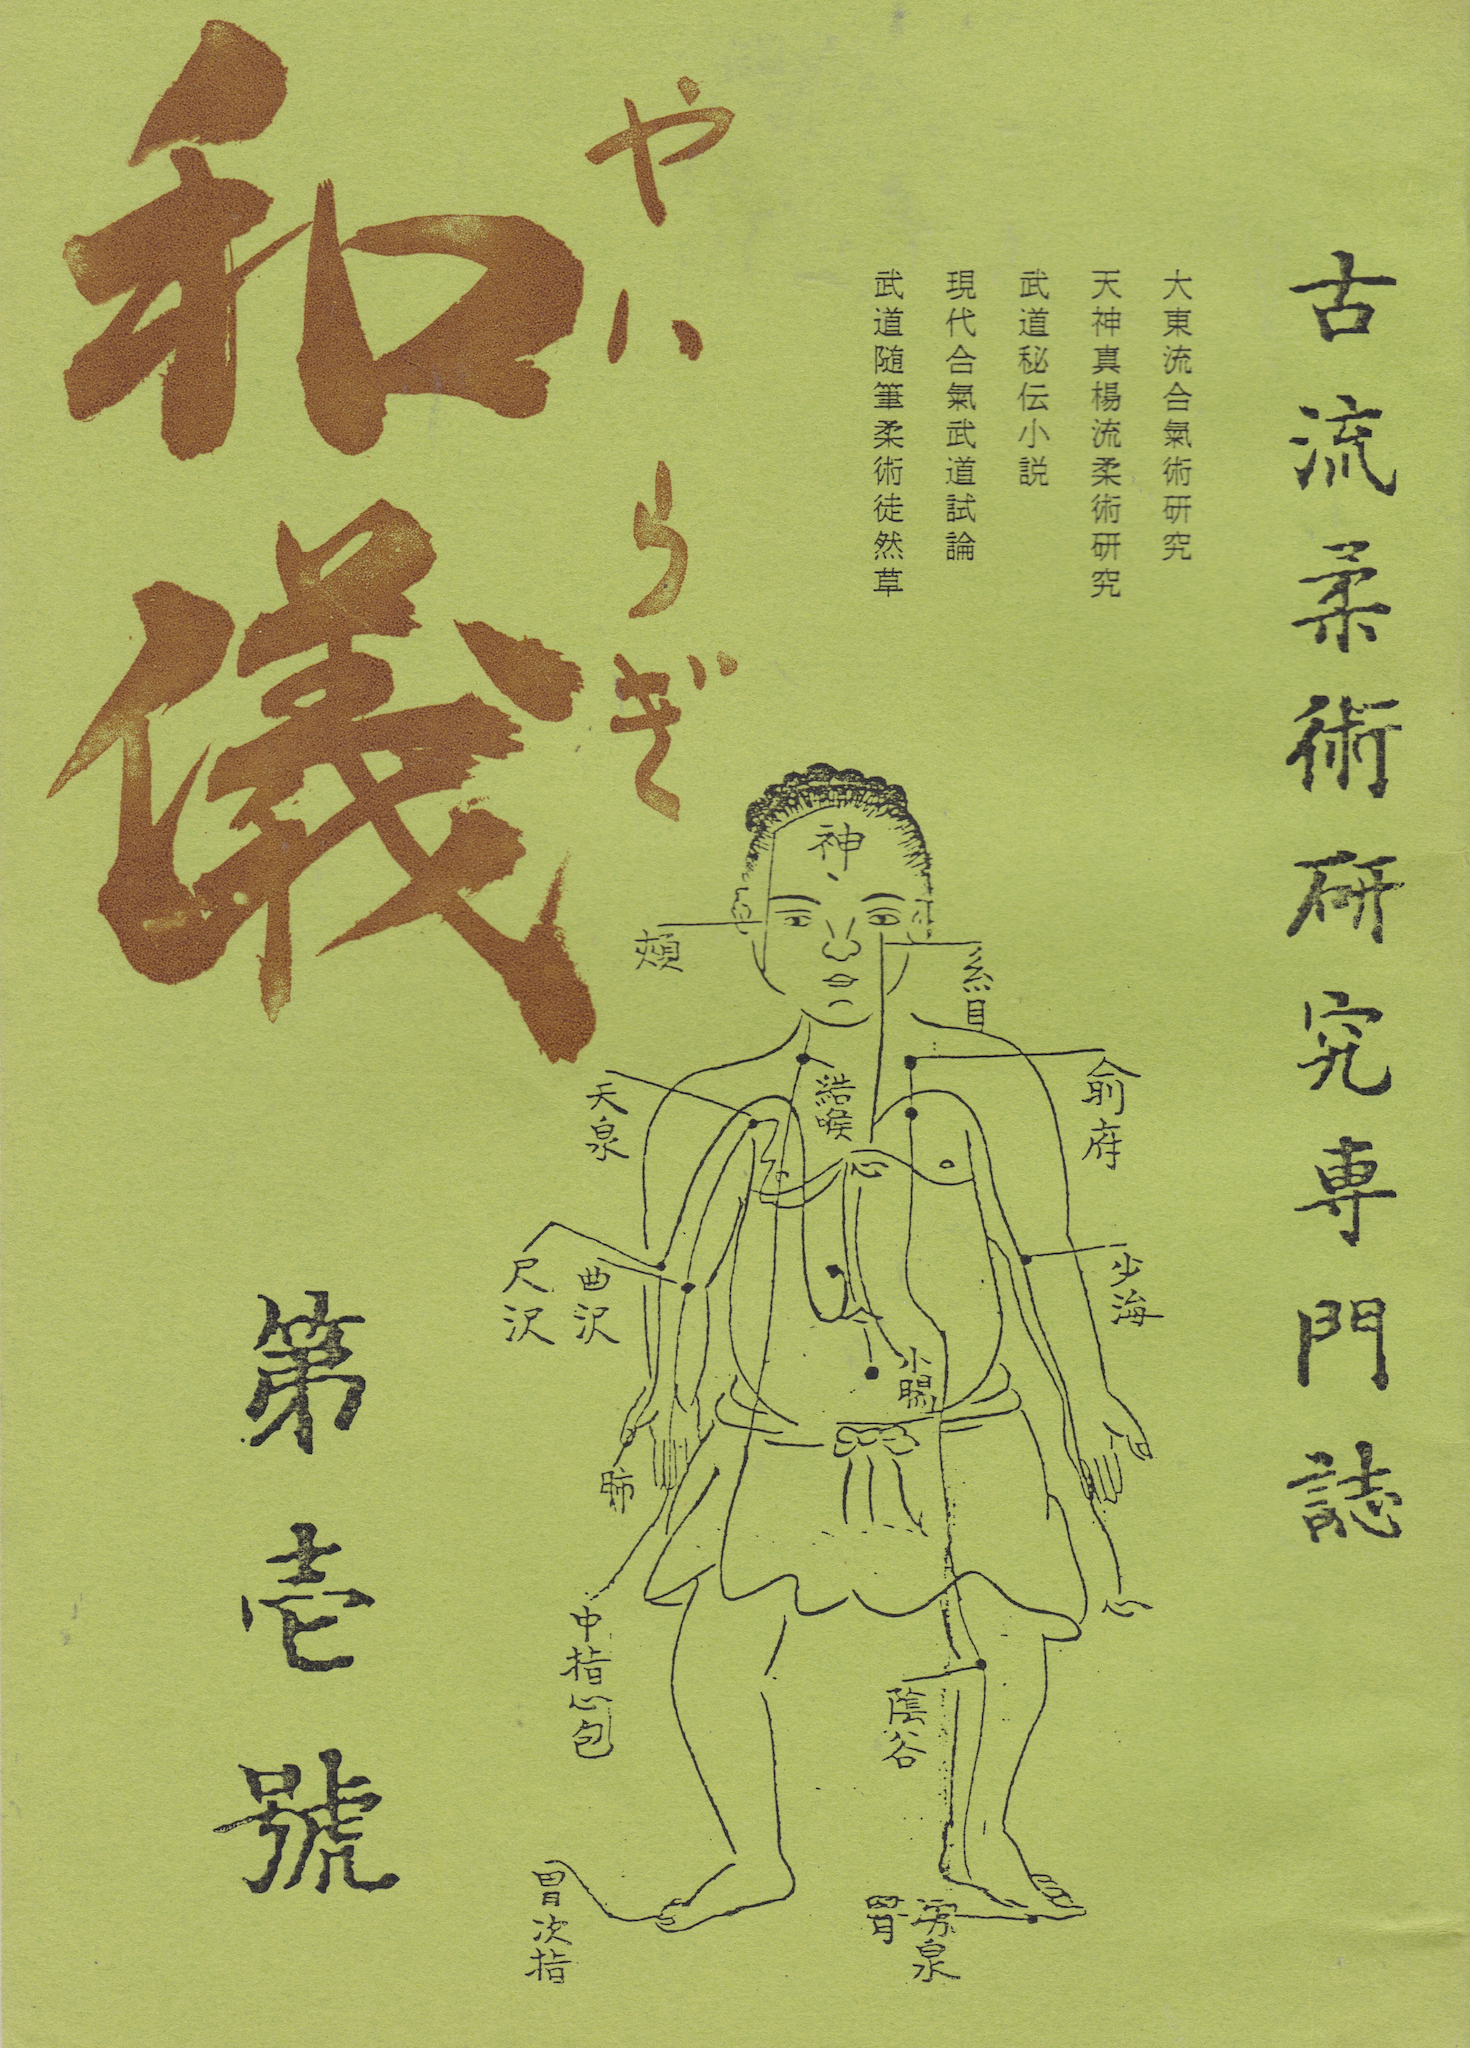 古流柔術研究専門誌
大東流合氣術研究
天神真楊流柔術研究
武道秘伝小説
現代合氣武道試論
武道随筆柔術徒然草
やハらぎ
和儀
第壱號
神
頬
系目
兪府
結喉
天泉
心
少海
曲沢
尺沢
小腸
肺
心
中指心包
陰谷
胃次指
泉
胃